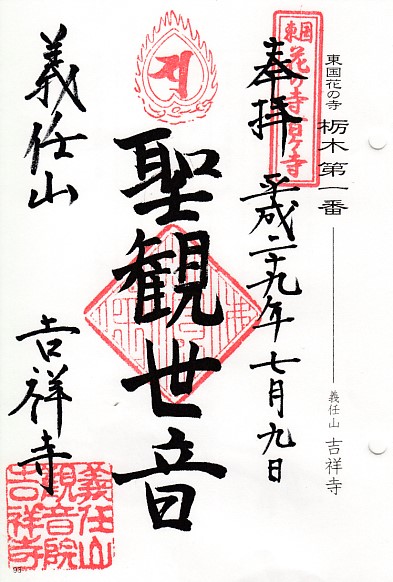 東国花の寺 栃木第一番 義任山 吉祥寺
東国
花の寺百ヶ寺
奉拝 平成二十九年七月九日
聖観世音
義任山 吉祥寺
義任山
観音院
吉祥寺
93